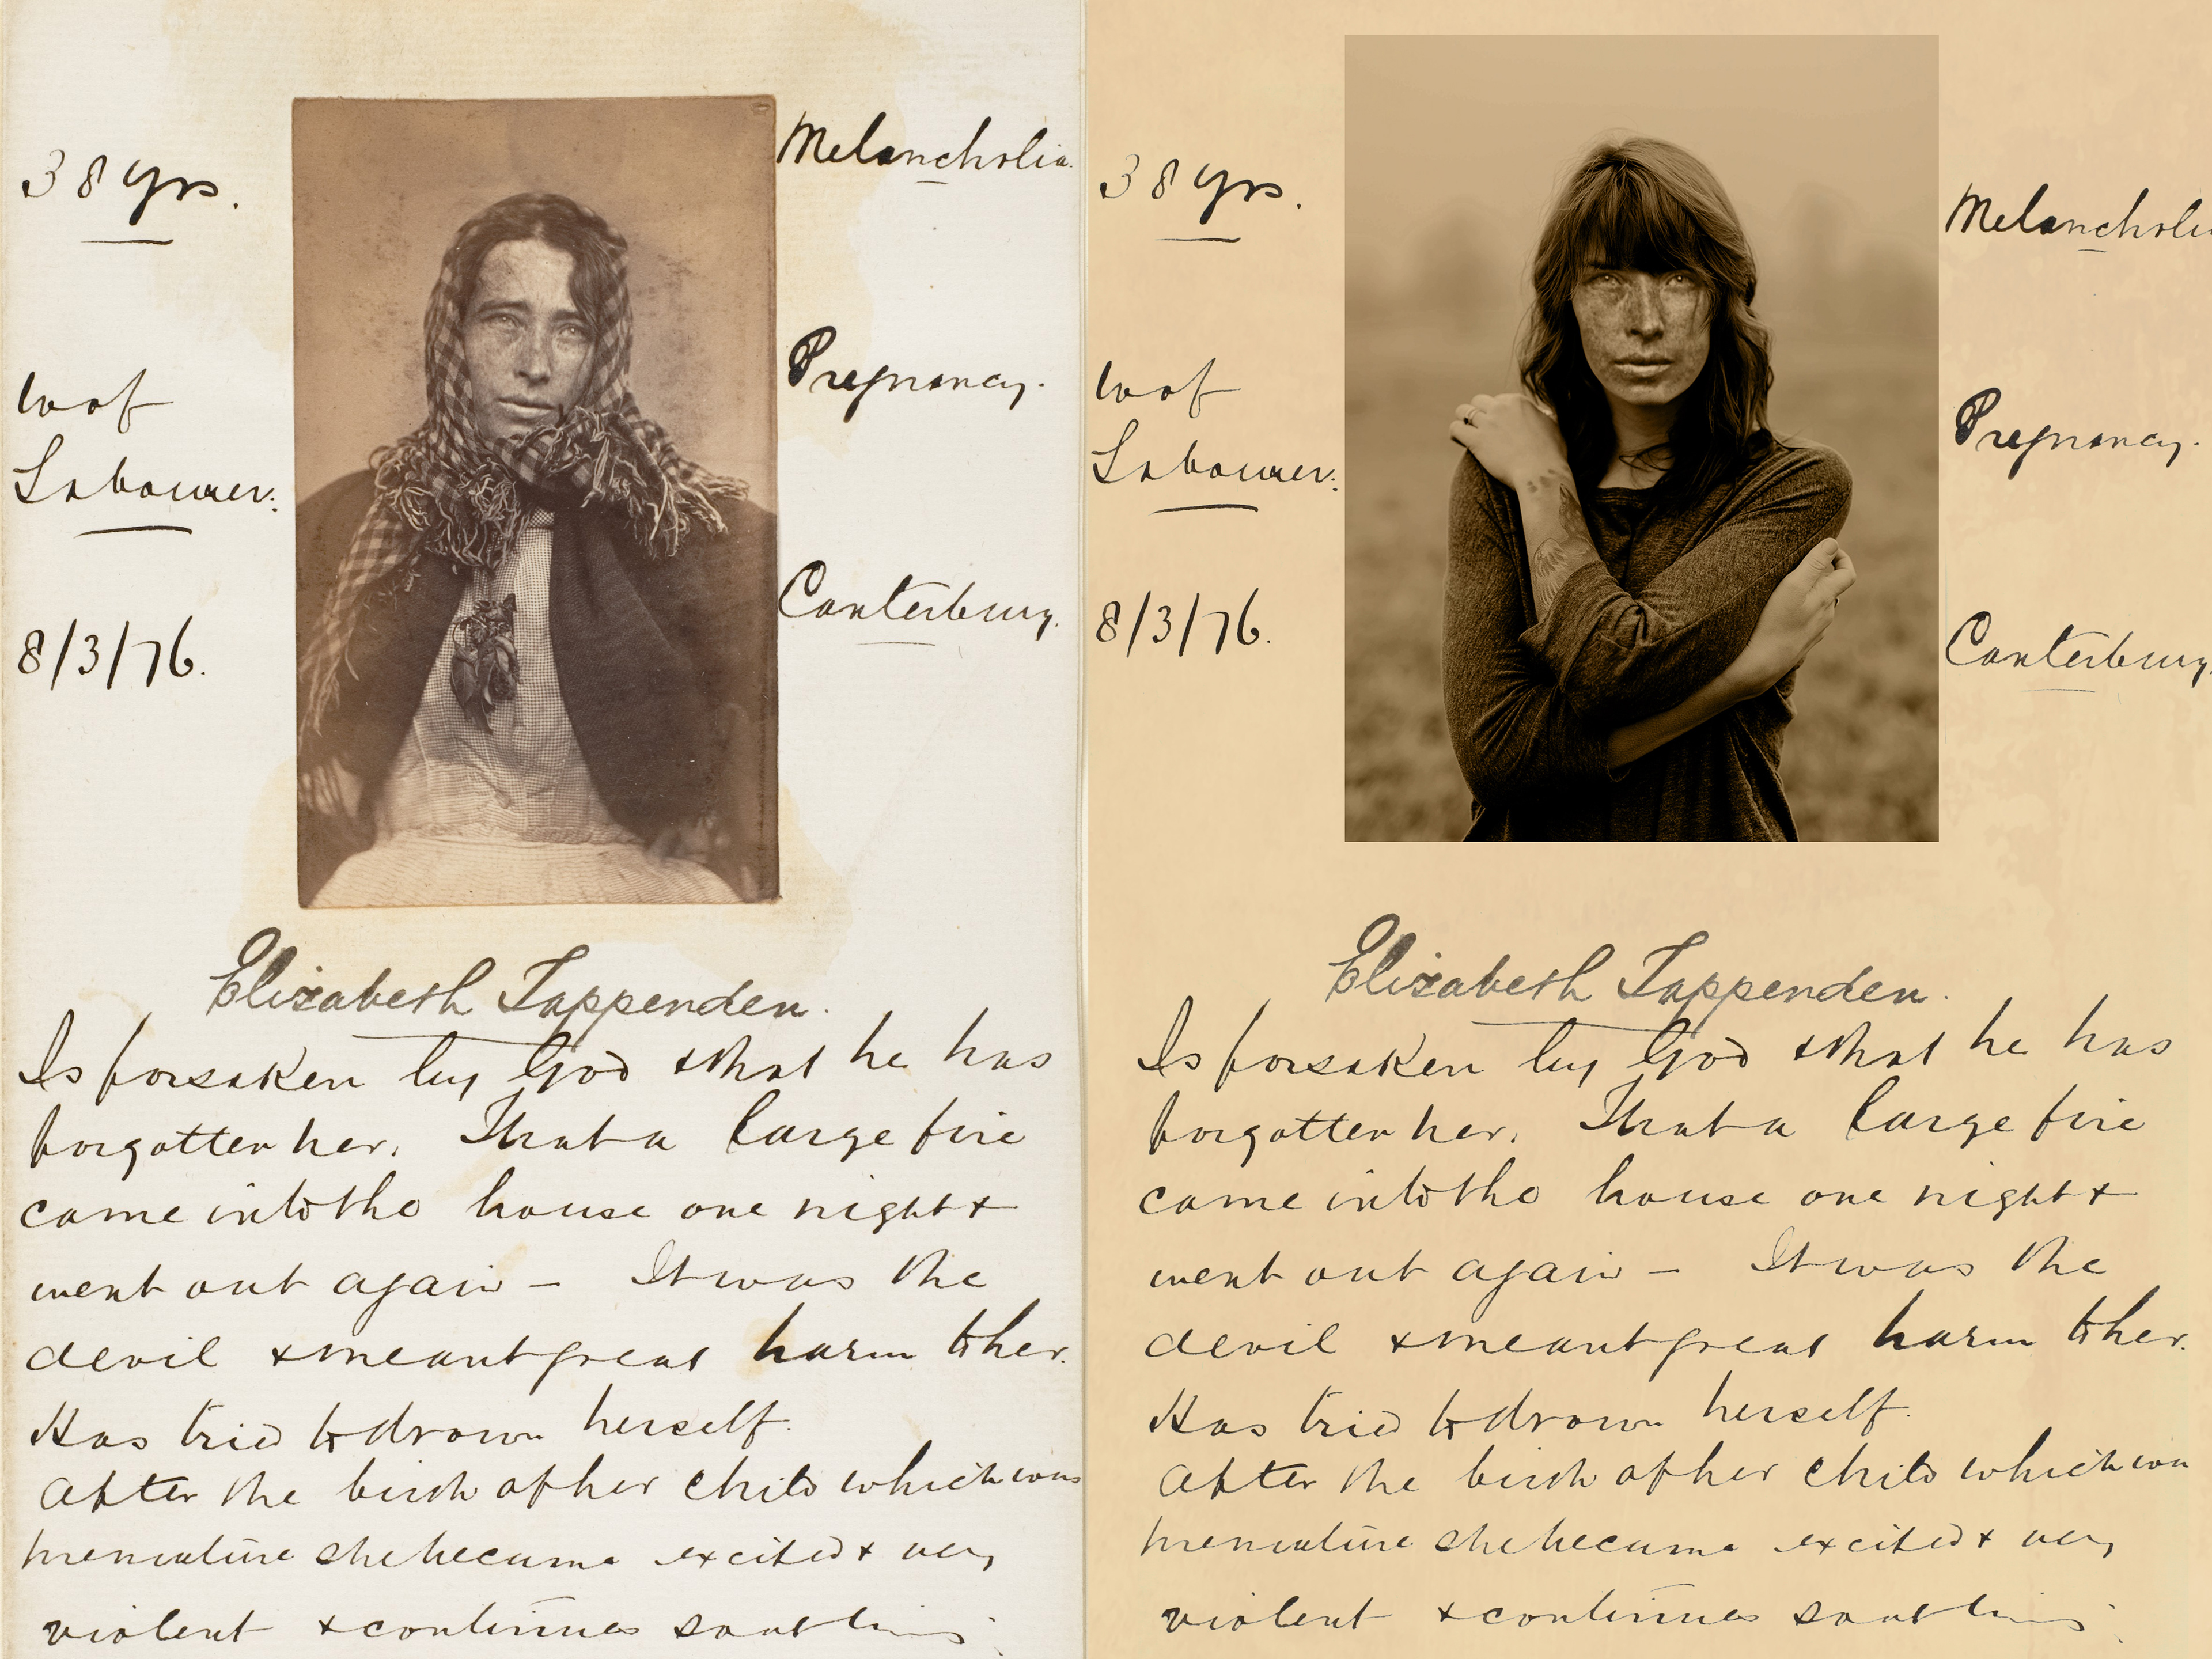 38 yrs.
W of
Labourer.
8/3/76.
Melancholia.
Pregnancy.
Canterbury.
Elizabeth Tappenden.
Is forsaken by God & that he has
forgotten her. That a large fire
came into the house one night &
went out again – It was the
devil & meant great harm to her.
Has tried to drown herself.
After the birth of her child which was
premature she became excited & very
violent & continues so
38 yrs.
W of
Labourer.
8/3/76.
Melancholi
Pregnancy.
Canterbury
Elizabeth Tappenden.
Is forsaken by God & that he has
forgotten her. That a large fire
came into the house one night &
went out again – It was the
devil & meant great harm to her.
Has tried to drown herself.
After the birth of her child which was
premature she became excited & very
violent & continues so